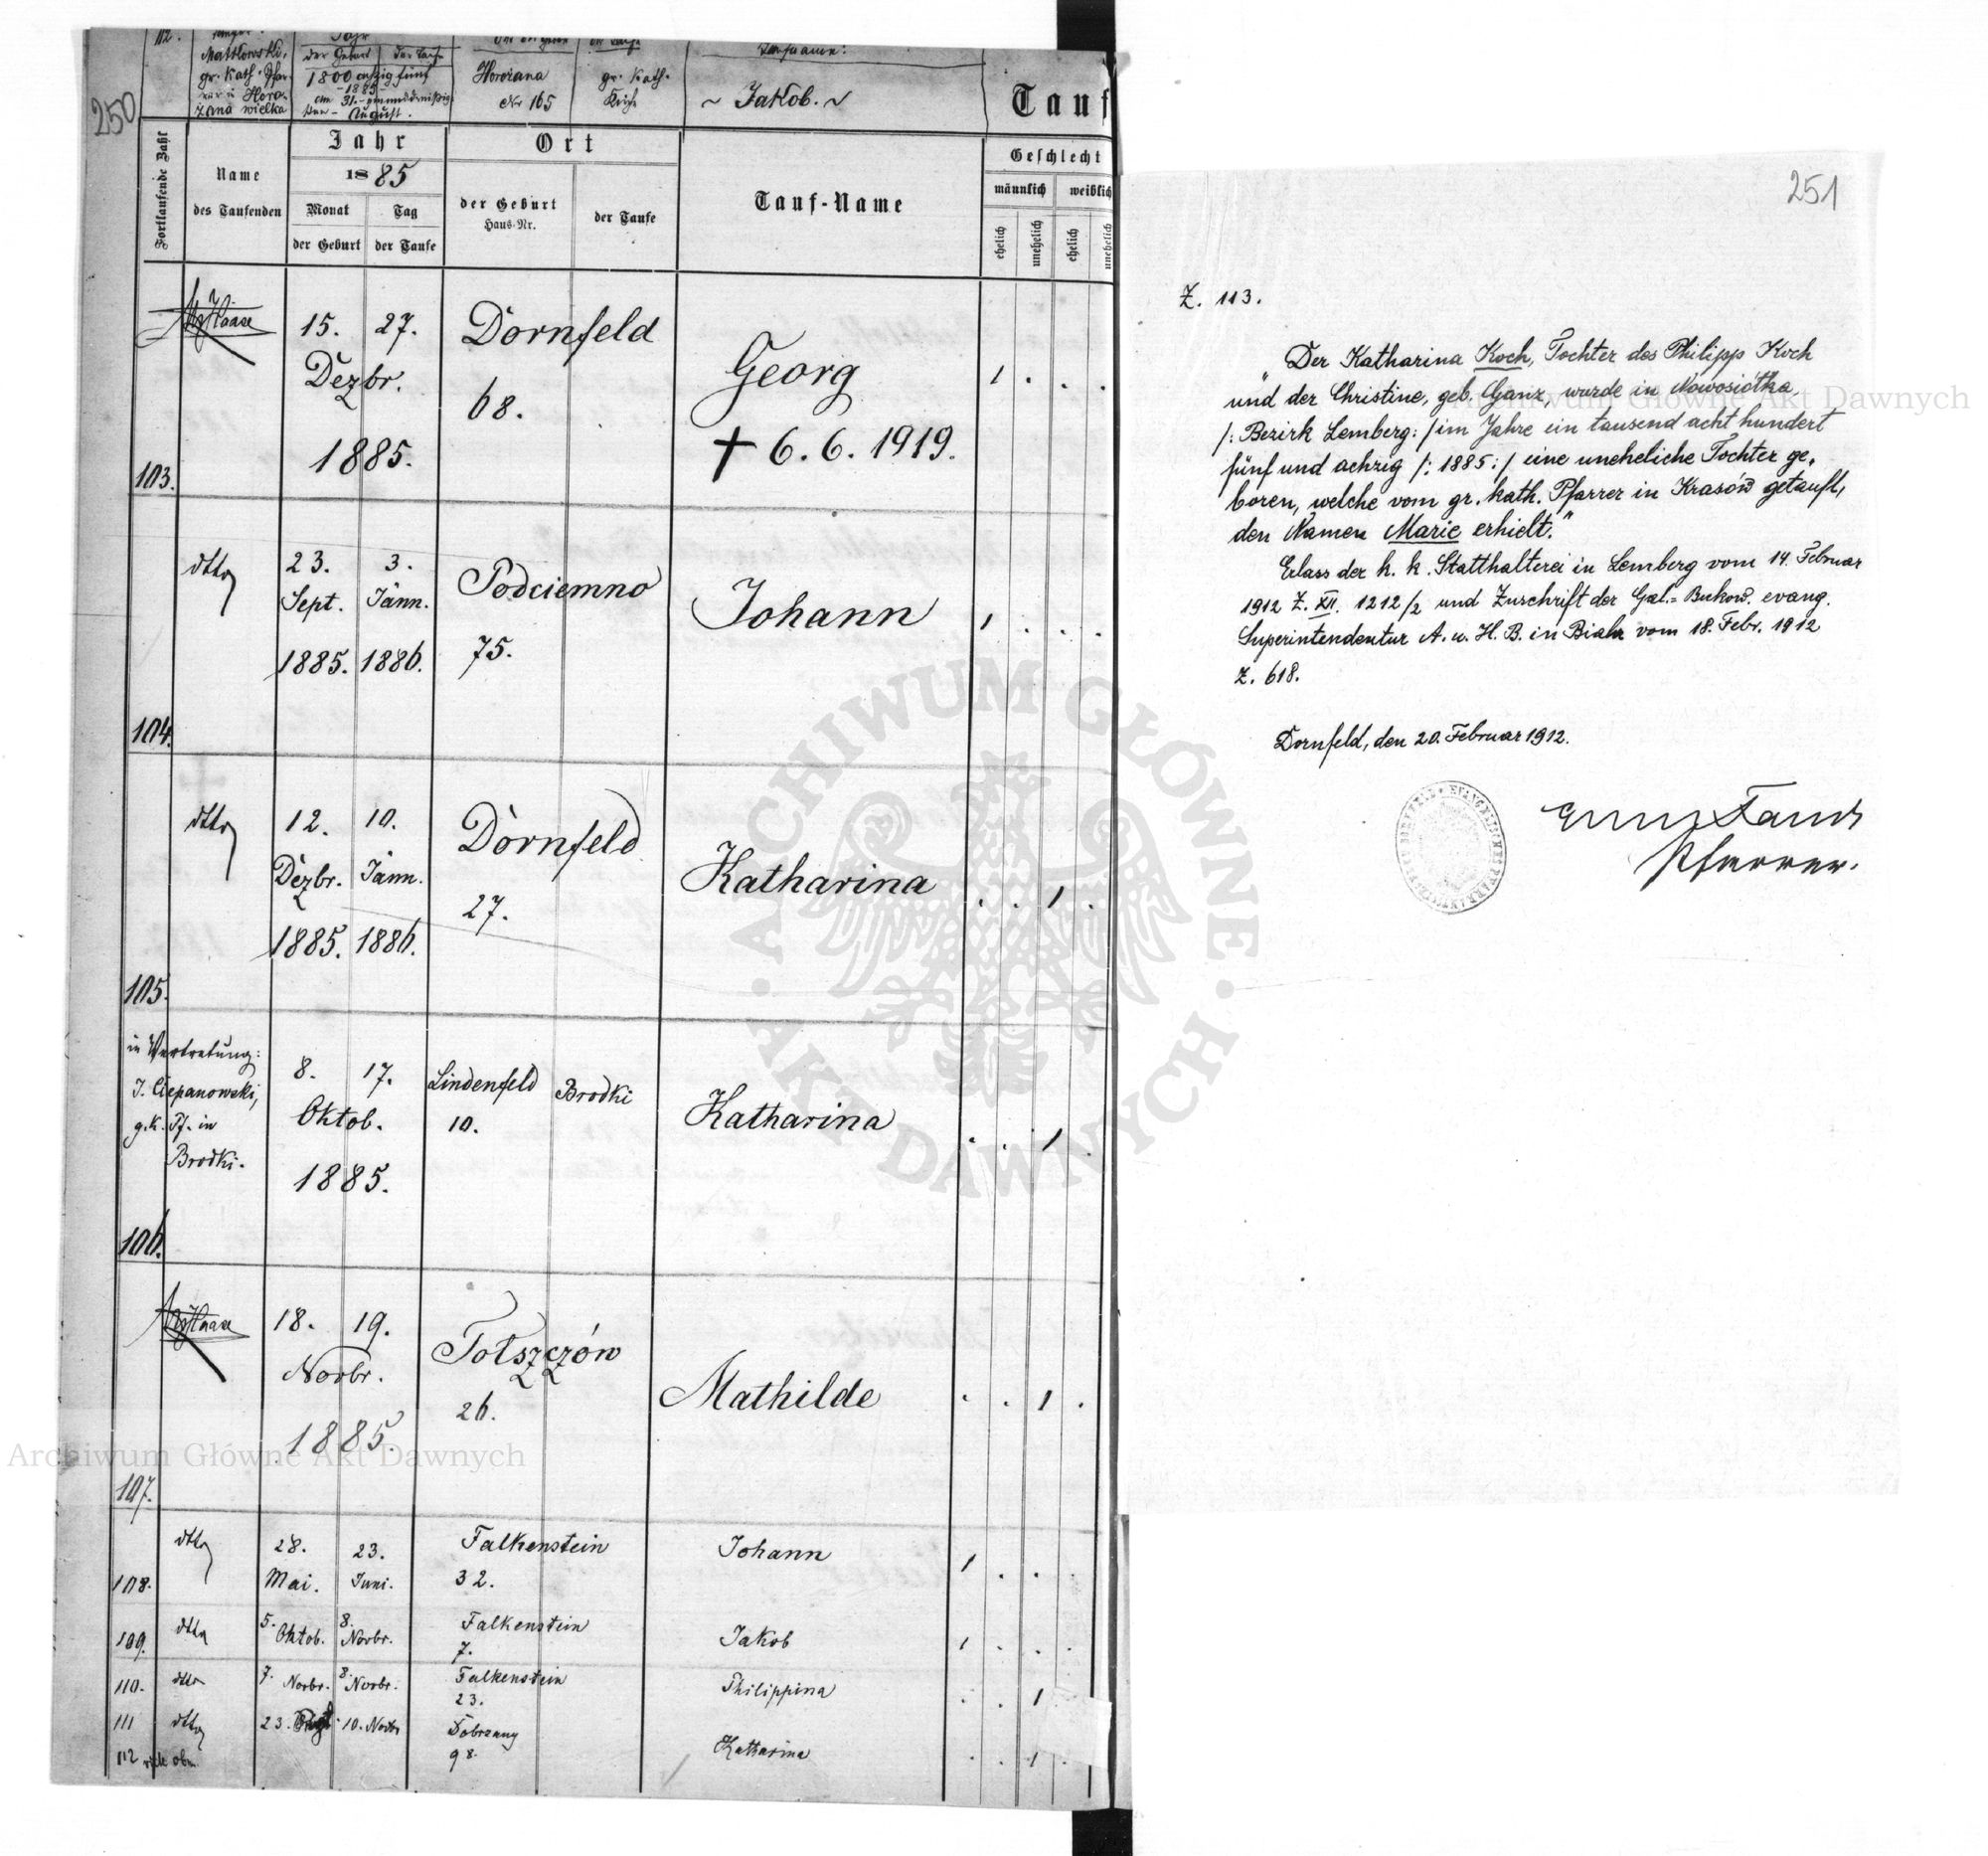 250
112.
Matkowski,
gr. kath. Pfar-
rer in Horo-
zana wielka
Jahr
der Geburt der Taufe
1800 achzig fünf
-1885-
am 31.
August.
Horożana
Nr 165
gr. Kath.
Kirche
Taufname:
~ Jakob. ~
Tauf
Fortlaufende Zahl
Name
des Taufenden
Jahr
1885
Monat Tag
der Geburt der Taufe
Ort
der Geburt
Haus-Nr.
der Taufe
Tauf-Name
Geschlecht
männlich weiblich
ehelich unehelich ehelich unehelich
103.
Haase
15. 27.
Dezbr.
1885.
Dornfeld
68.
Georg
† 6. 6. 1919.
1 . . .
104.
dtto
23. 3.
Sept. Jänn.
1885. 1886.
Podciemno
75.
Johann
1 . . .
105.
dtto
12. 10.
Dezbr. Jänn.
1885. 1886.
Dornfeld
27.
Katharina
. . 1 .
106.
in Vertretung:
J. Ciepanowski,
g. k. Pf. in
Brodki.
8. 17.
Oktob.
1885.
Lindenfeld
10.
Brodki
Katharina
. . 1 .
107.
Haase
18. 19.
Novbr.
1885.
Tołszczów
26.
Mathilde
. . 1 .
108.
dtto
28. 23.
Mai. Juni.
Falkenstein
32.
Johann
1 . . .
109.
dtto
5. Oktob. 8. Novbr.
Falkenstein
7.
Jakob
1 . . .
110.
dtto
7. Novbr. 8. Novbr.
Falkenstein
23.
Philippina
. . 1
111
dtto
23. 10. Novbr
Dobrzany
98.
Katharina
. . 1 .
112 siehe oben
251
Z. 113.
„Der Katharina Koch, Tochter des Philipp Koch
und der Christine, geb. Ganz, wurde in Nowosiółka
/: Bezirk Lemberg: / im Jahre ein tausend acht hundert
fünf und achzig /: 1885 :/ eine uneheliche Tochter ge-
boren, welche vom gr. kath. Pfarrer in Krasów getauft,
den Namen Marie erhielt."
Erlass der k. k. Statthalterei in Lemberg vom 14. Februar
1912 Z. XII. 1212/2 und Zuschrift der Gal.-Bukow. evang.
Superintendentur A. u. H. B. in Biala vom 18. Febr. 1912
Z. 618.
Dornfeld, den 20. Februar 1912.
Pfarrer.
EVANGELISCHES PFARRAMT DORNFELD
ARCHIWUM GŁÓWNE AKT DAWNYCH
Archiwum Główne Akt Dawnych
Archiwum Główne Akt Dawnych